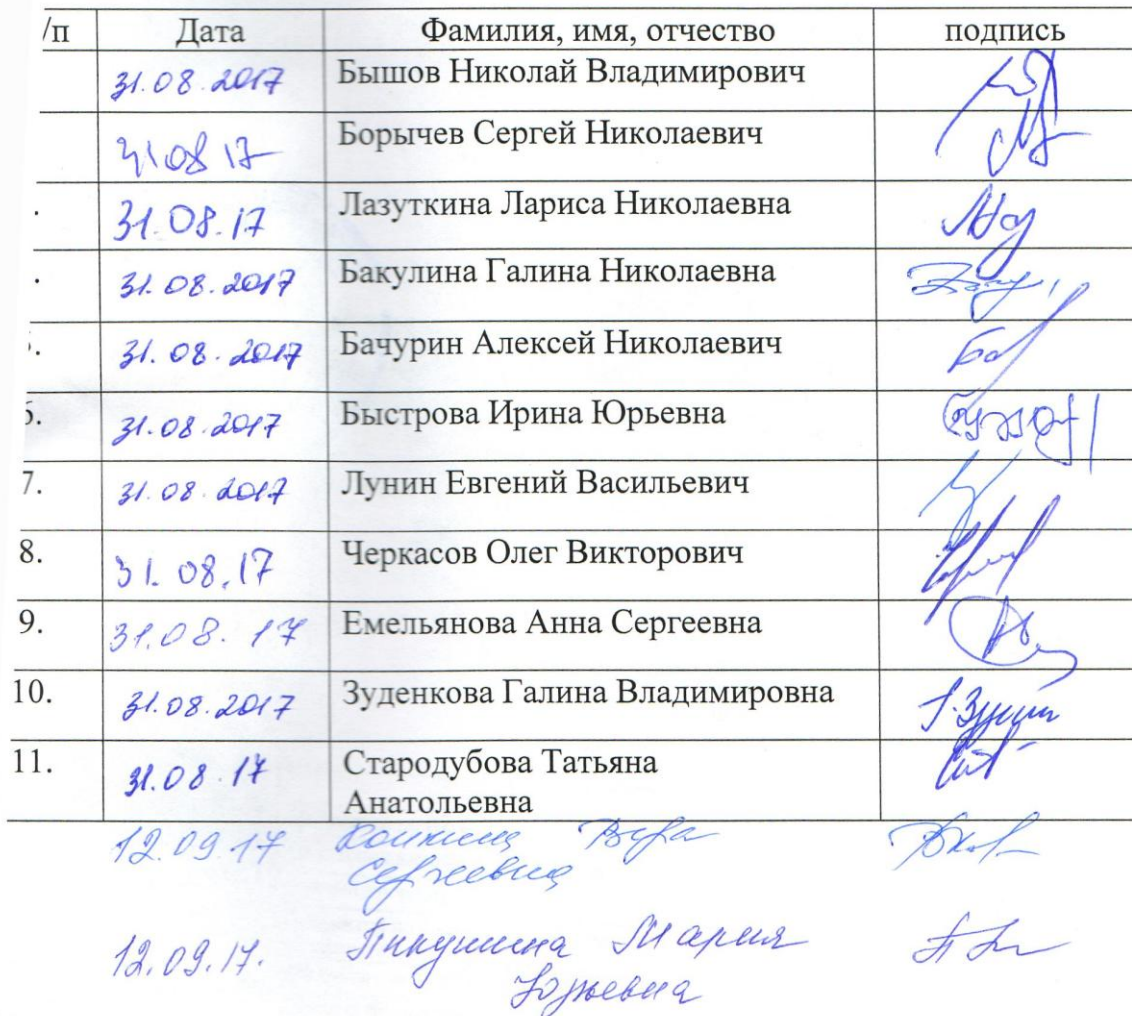 /п Дата Фамилия, имя, отчество подпись
31.08.2017 Бышов Николай Владимирович
31 08 17 Борычев Сергей Николаевич
. 31.08.17 Лазуткина Лариса Николаевна
. 31.08.2017 Бакулина Галина Николаевна
. 31.08.2017 Бачурин Алексей Николаевич
6. 31.08.2017 Быстрова Ирина Юрьевна
7. 31.08.2017 Лунин Евгений Васильевич
8. 31.08.17 Черкасов Олег Викторович
9. 31.08.17 Емельянова Анна Сергеевна
10. 31.08.2017 Зуденкова Галина Владимировна
11. 31.08.17 Стародубова Татьяна
Анатольевна
12.09.17 Конкина Вера
Сергеевна
12.09.17. Пикушина Мария
Юрьевна